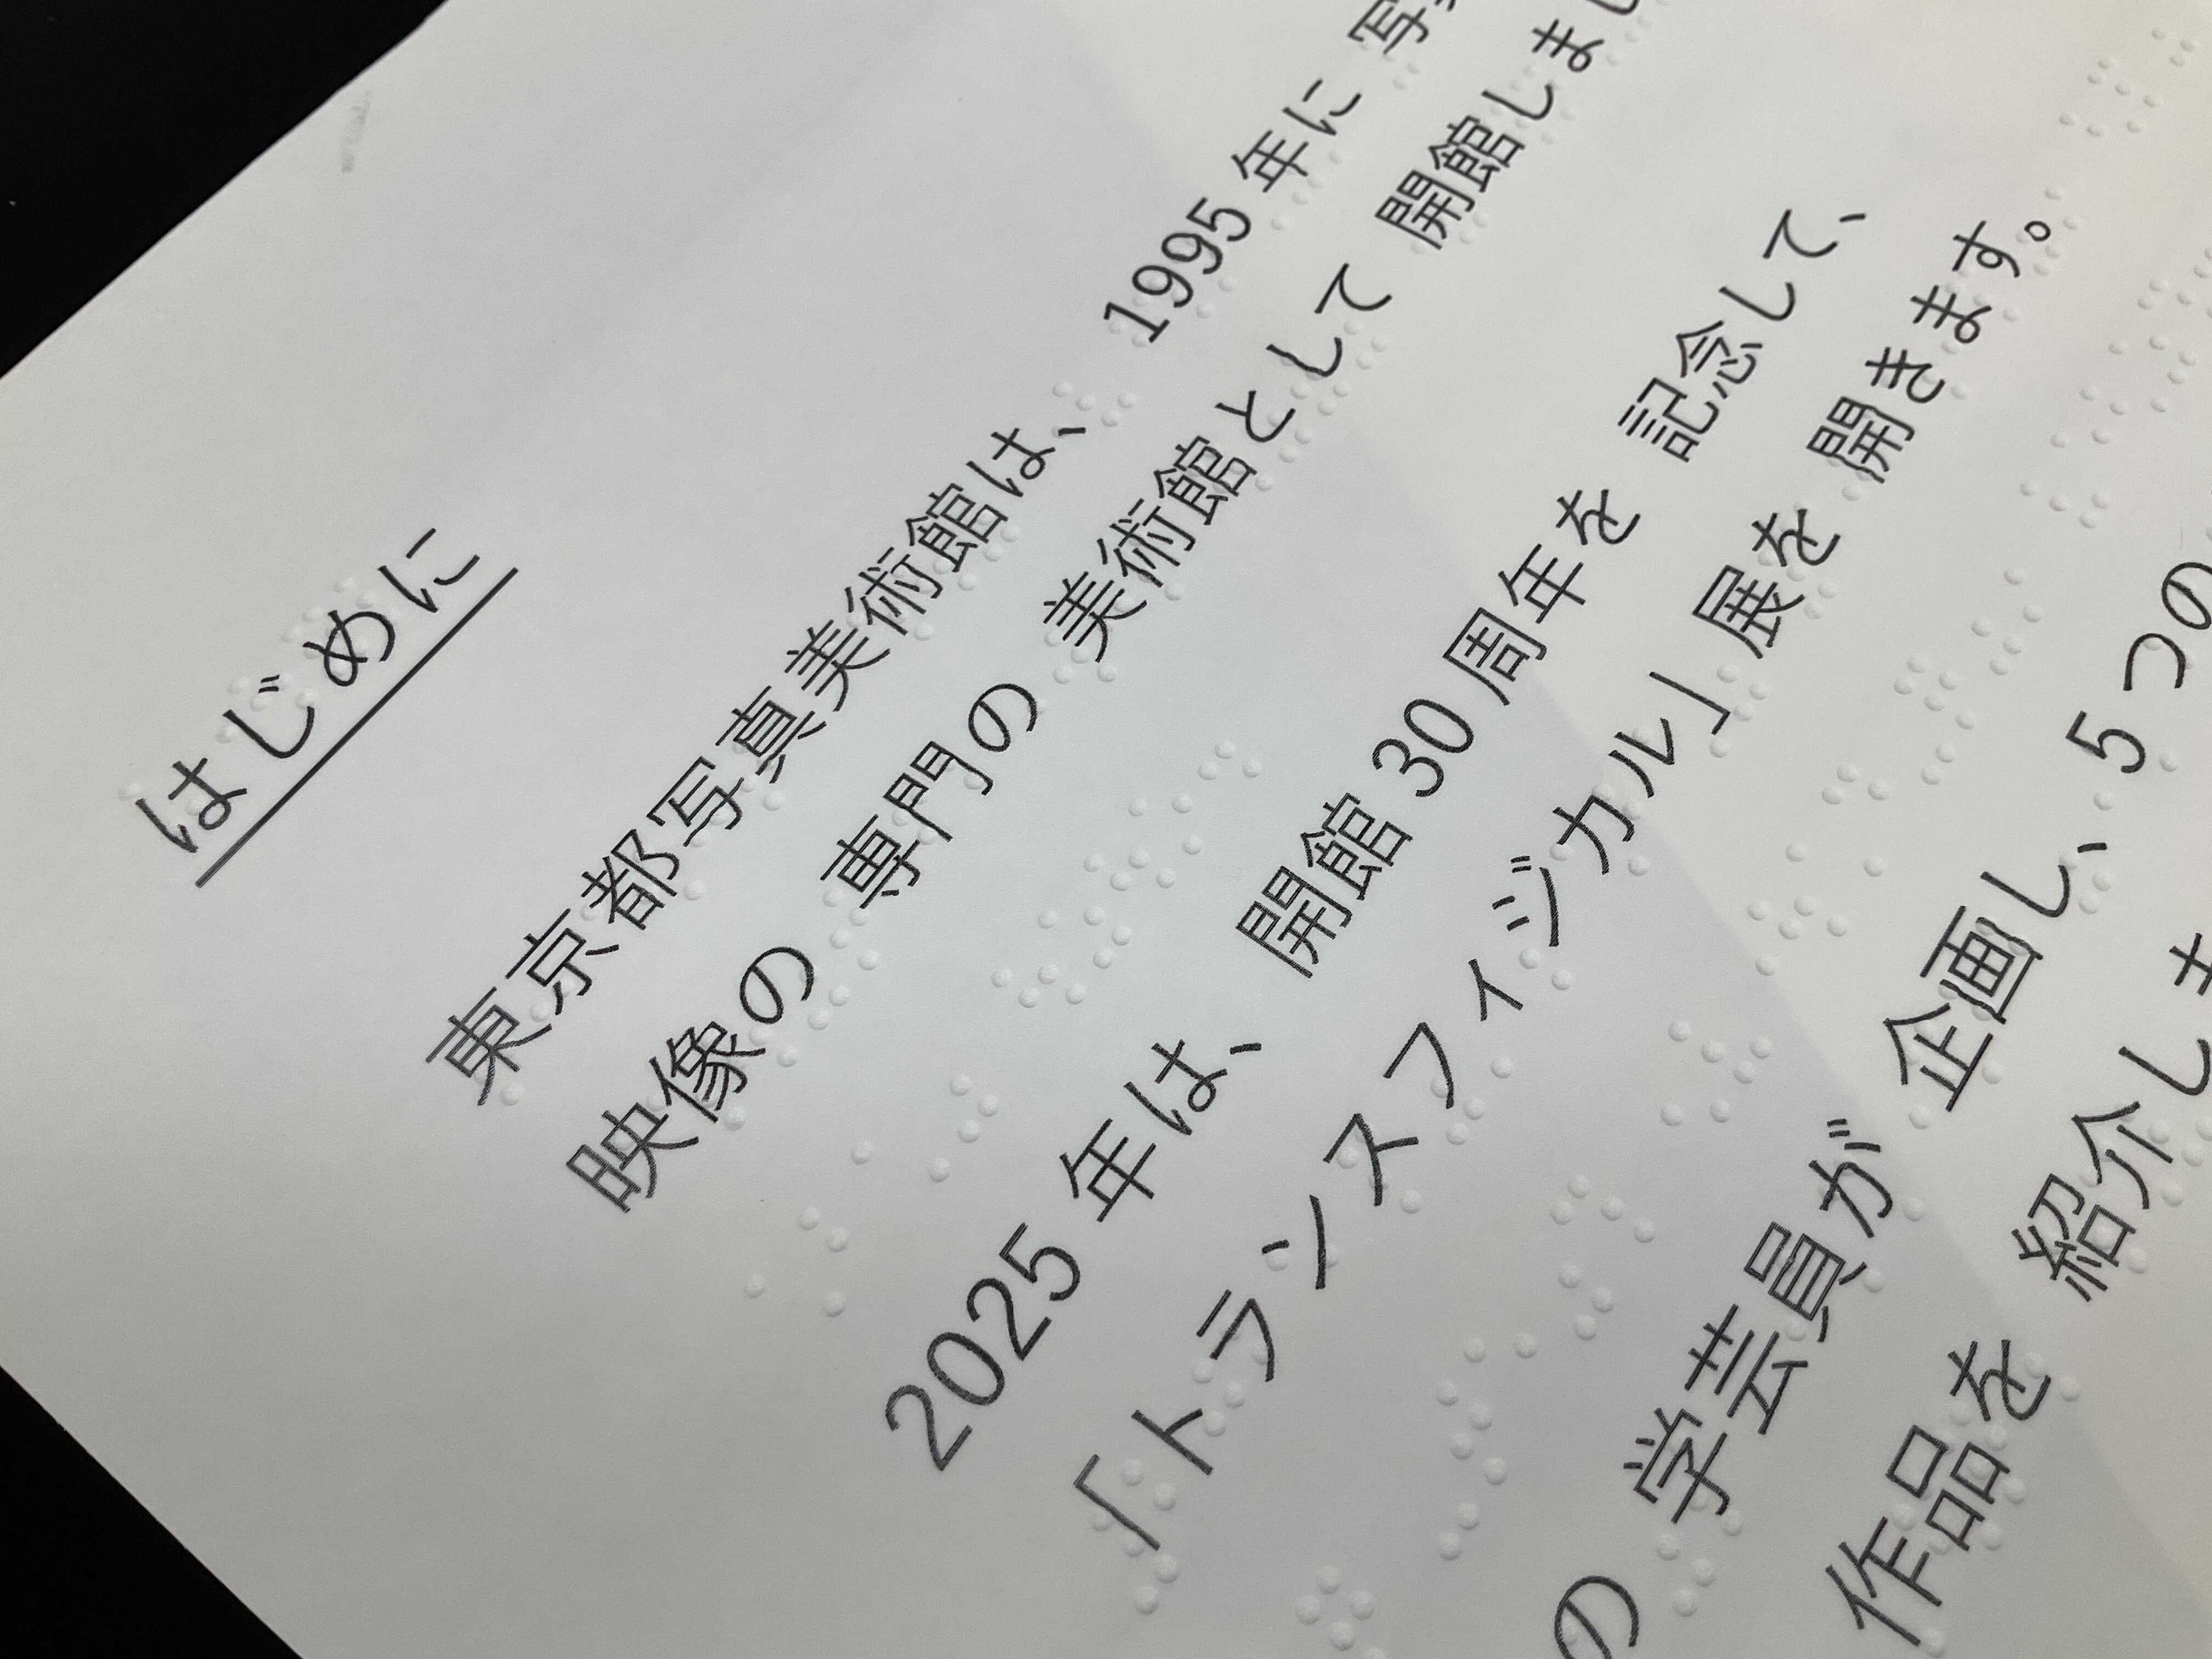 はじめに
東京都写真美術館は、 1995年に 写
映像の 専門の 美術館として 開館しまし
2025年は、 開館30周年を 記念して、
「トランスフィジカル」展を 開きます。
の 学芸員が 企画し、5つの
作品を 紹介しま